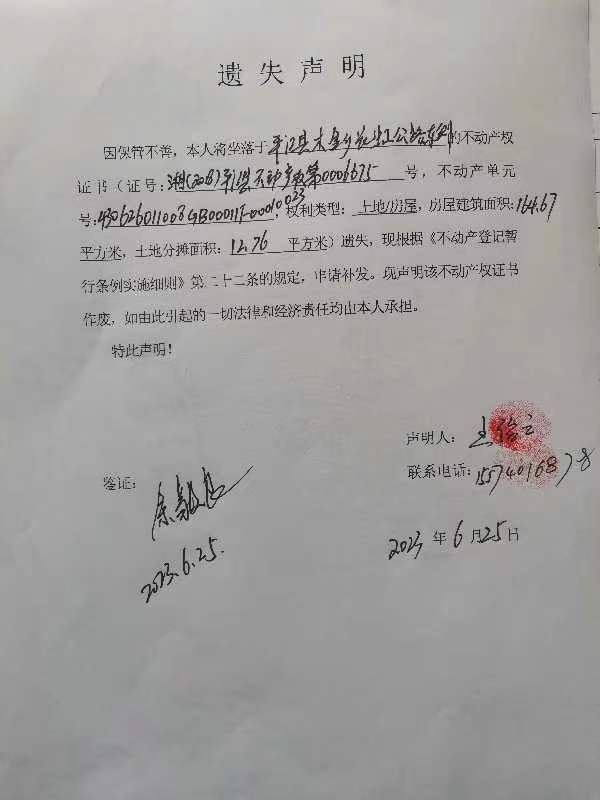 遗失声明
因保管不善,本人将坐落于平江县木金乡 公路东侧的不动产权
证书(证号:湘(2018)平江县不动产权第0006675 号,不动产单元
号:430626011008GB00011F00010023,权利类型:土地/房屋,房屋建筑面积:164.67
平方米,土地分摊面积:12.76 平方米)遗失,现根据《不动产登记暂
行条例实施细则》第二十二条的规定,申请补发。现声明该不动产权证书
作废,如由此引起的一切法律和经济责任均由本人承担。
特此声明!
声明人:
鉴证:
联系电话:
2023.6.25.
2023年6月25日